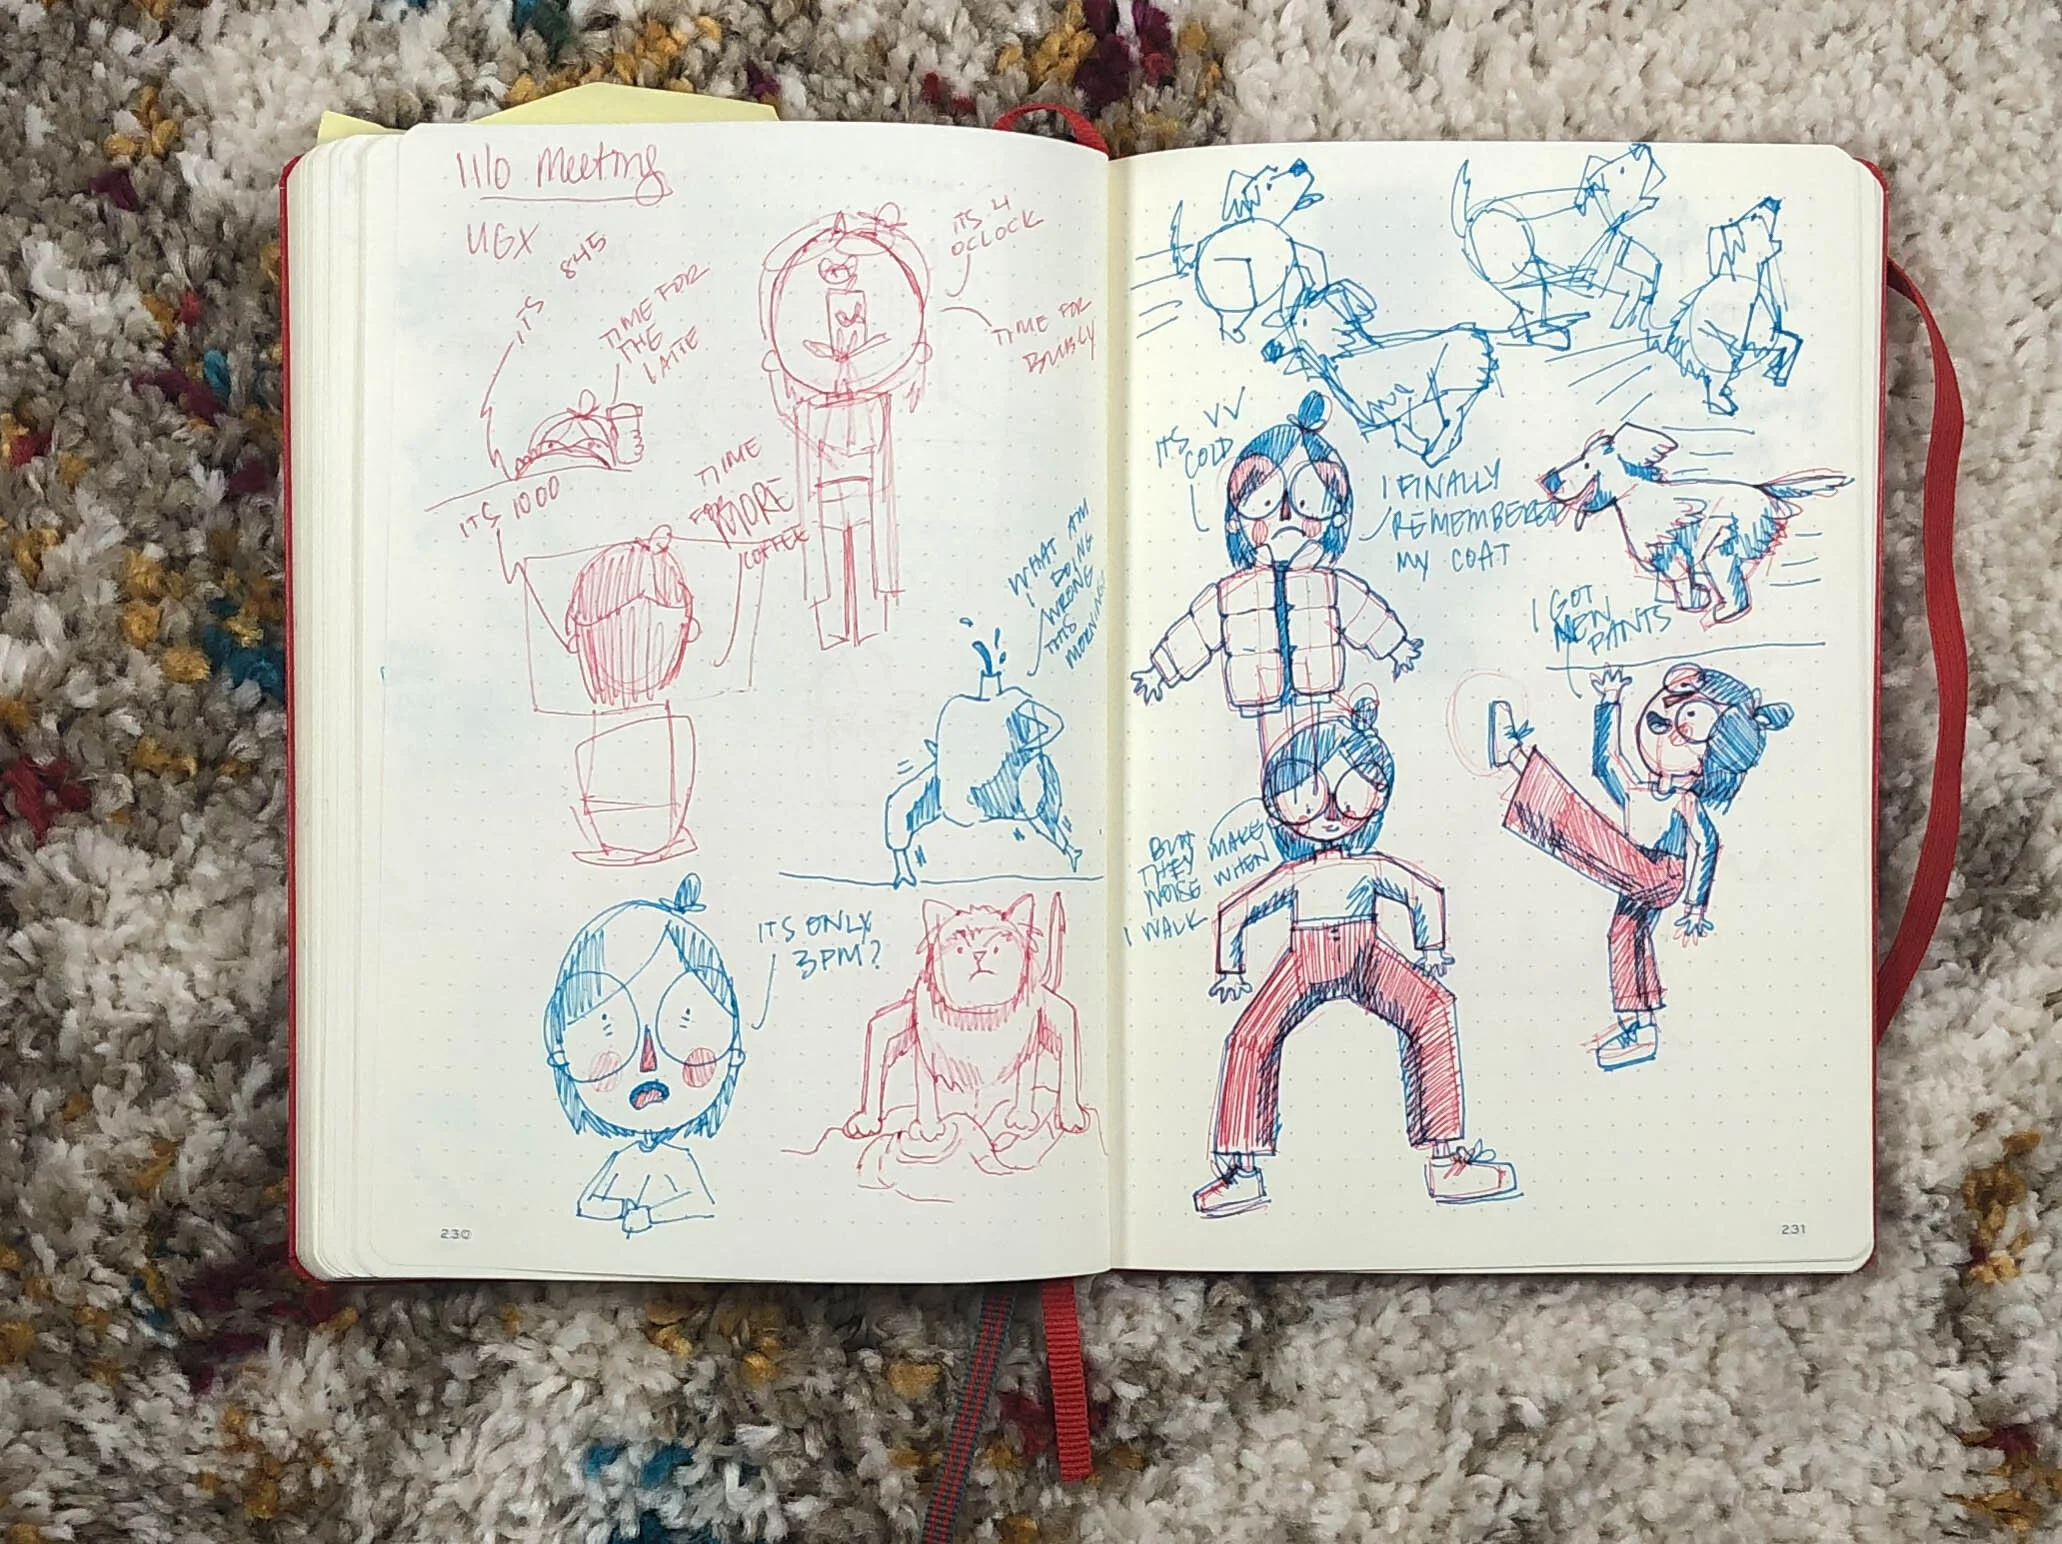 1110 Meeting
UGX
ITS 845
TIME FOR
THE
LATTE
ITS 4
OCLOCK
TIME FOR
BUBLY
ITS 1000
TIME
FOR MORE
COFFEE
WHAT AM
I DOING
WRONG
THIS
MORNING
ITS ONLY
3PM?
230
ITS VV
COLD
I FINALLY
REMEMBERED
MY COAT
I GOT
MEN
PANTS
BUT
THEY MAKE
NOISE WHEN
I WALK
231